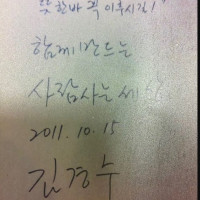 뜻한바 꼭 이루시길!
함께 만드는
사람사는 세상
2011. 10. 15
김경수